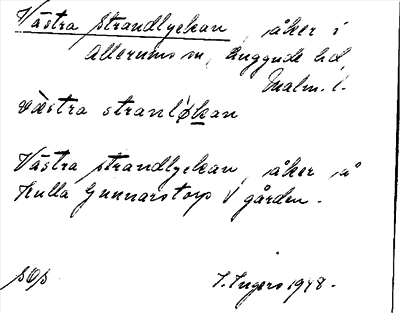 Västra strandlyckan, åker i
Allerums sn, Luggude hd,
Malm. l.
væ̀stra stranlø̀kan
Västra strandlyckan, åker å
Kulla Gunnarstorp V gården.
SOf
J. Ingers 1948.